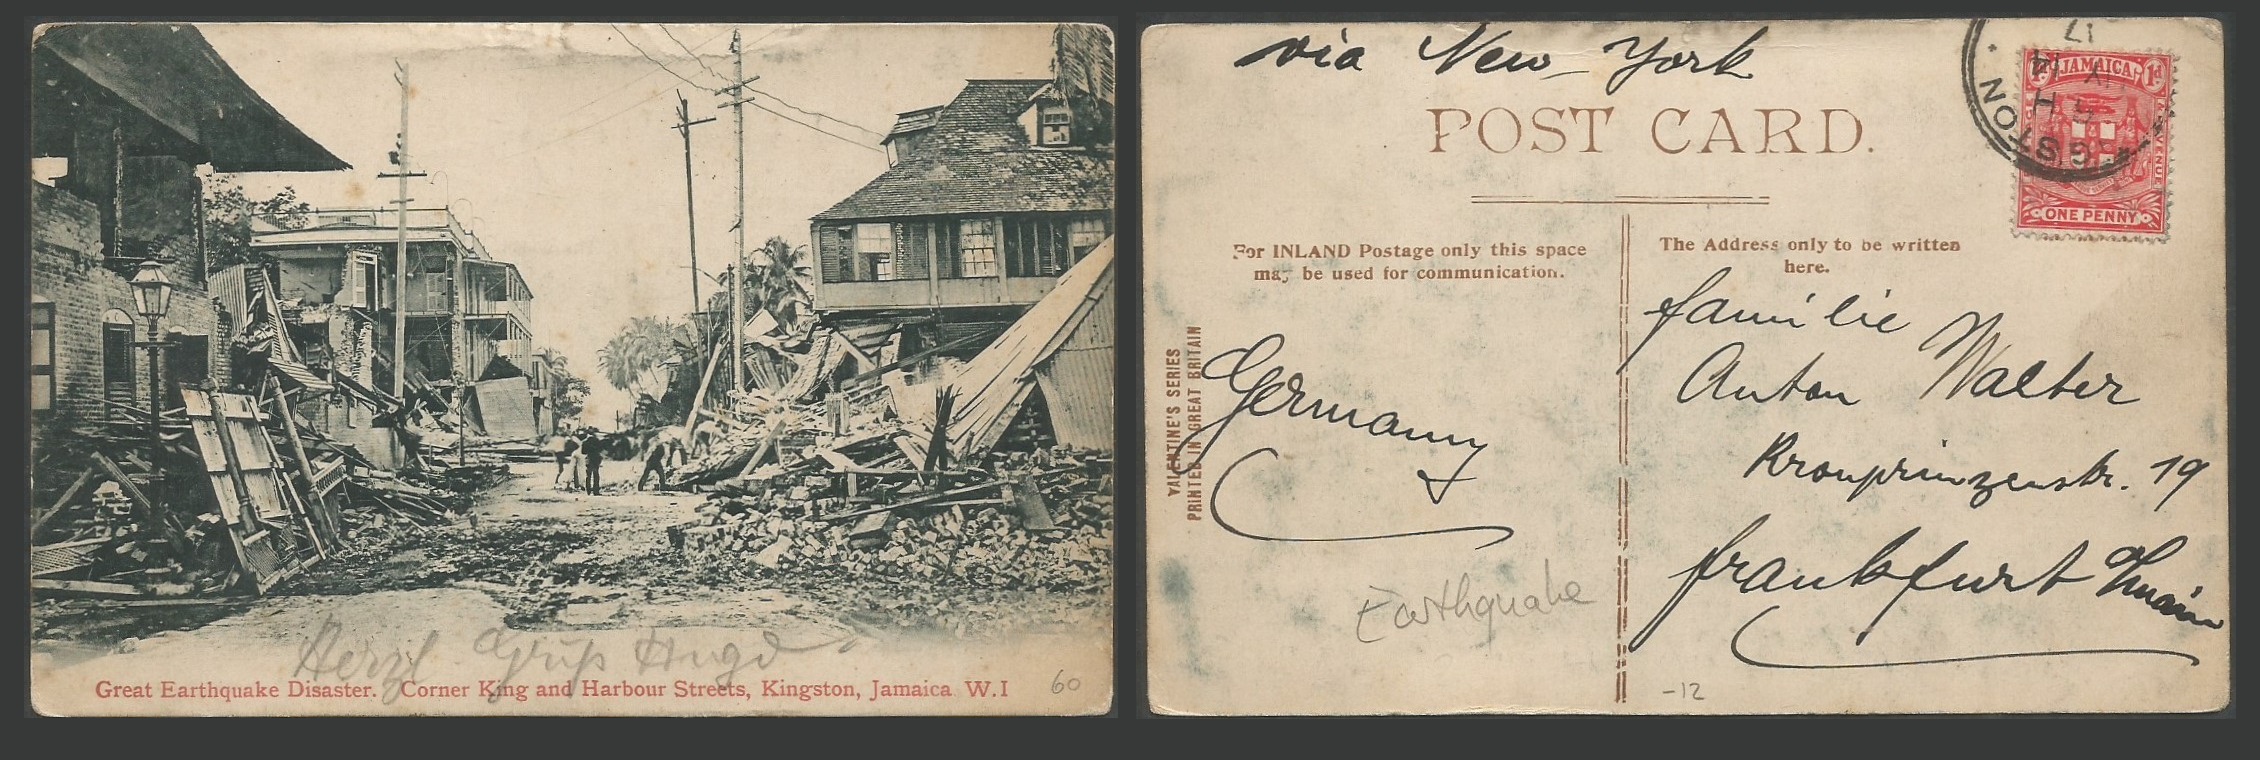 Herzl. Gruß Hugo
Great Earthquake Disaster. Corner King and Harbour Streets, Kingston, Jamaica W.I
60
via New-York
POST CARD.
For INLAND Postage only this space
may be used for communication.
The Address only to be written
here.
JAMAICA
1d
REVENUE
ONE PENNY
GSTON
14
17
VALENTINE'S SERIES
PRINTED IN GREAT BRITAIN
Germany
familie
Anton Walter
Kronprinzenstr. 19
frankfurt
Earthquake
-12